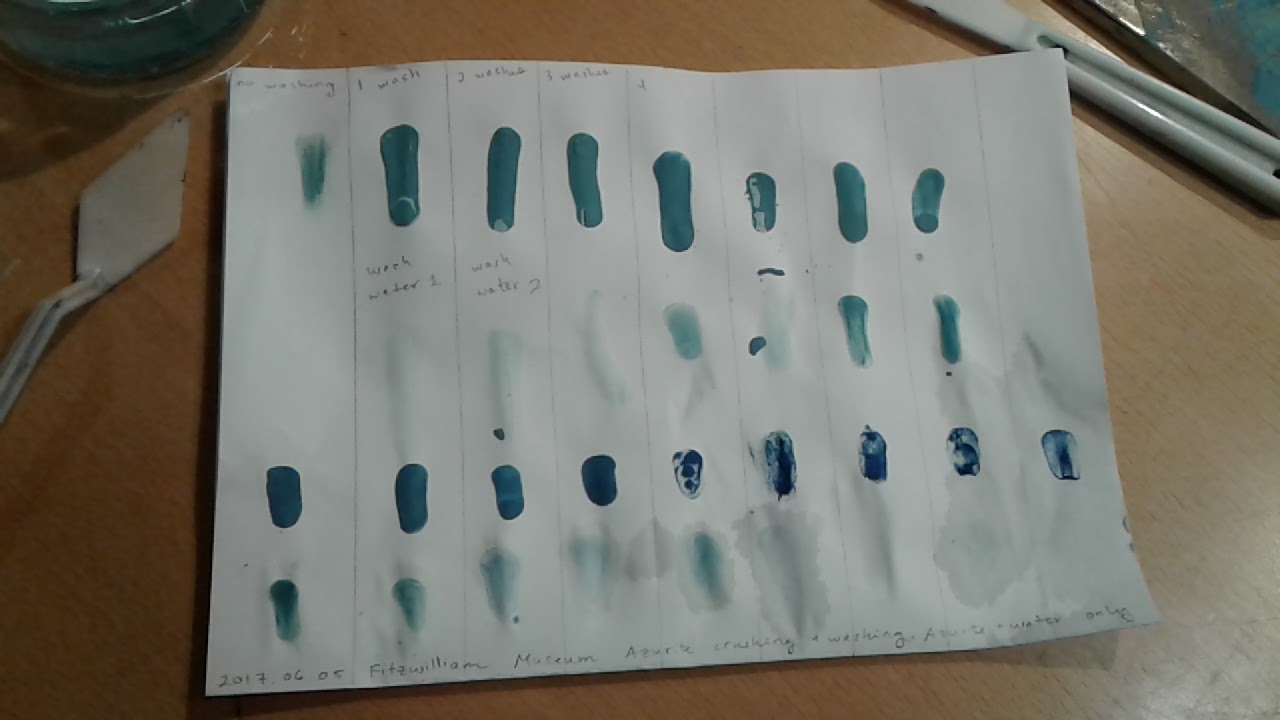 no washing 1 wash 2 washes 3 washes 4
wash water 1
wash water 2
2017.06 05 Fitzwilliam Museum Azurite crushing + washing. Azurite + water only